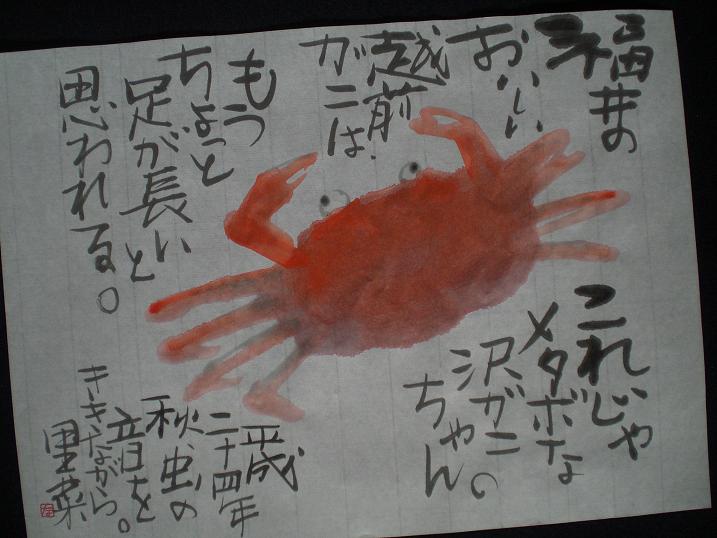 福井の
おいしい
越前
ガニは、
もう
ちょっと
足が長いと
思われる。
これじゃ
メタボな
沢ガニの
ちゃん
平成
二十四年
秋、虫の
音を
ききながら。
里菜